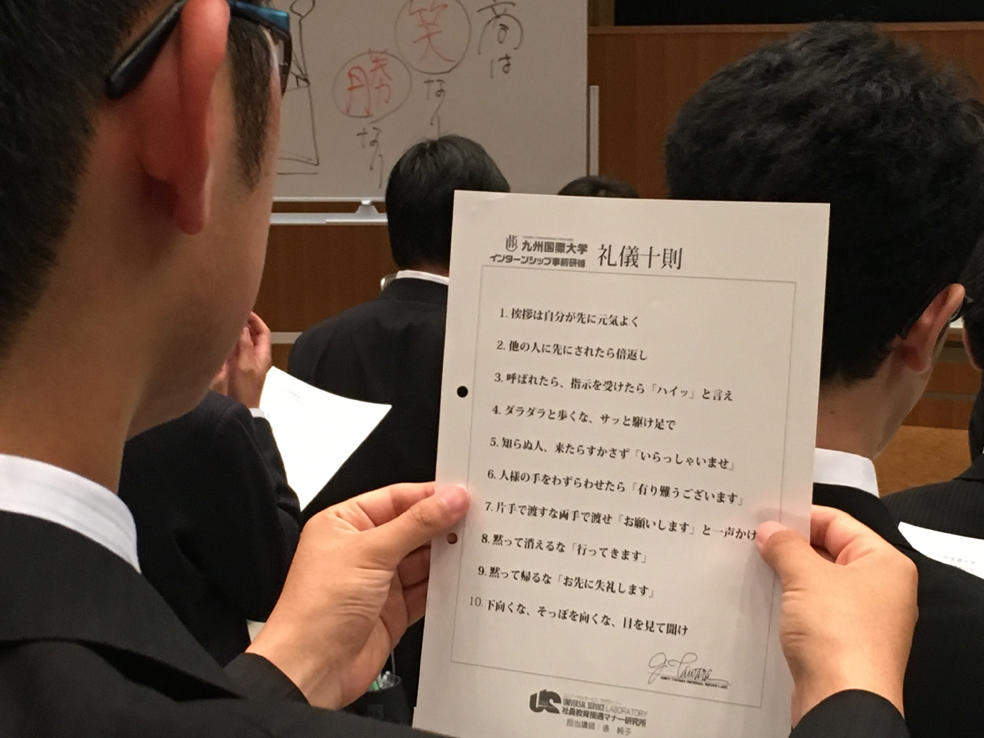 商は
笑なり
勝なり
九州国際大学
インターンシップ事前研修
礼儀十則
1. 挨拶は自分が先に元気よく
2. 他の人に先にされたら倍返し
3. 呼ばれたら、指示を受けたら「ハイッ」と言え
4. ダラダラと歩くな、サッと駆け足で
5. 知らぬ人、来たらすかさず「いらっしゃいませ」
6. 人様の手をわずらわせたら「有り難うございます」
7. 片手で渡すな両手で渡せ「お願いします」と一声かけ
8. 黙って消えるな「行ってきます」
9. 黙って帰るな「お先に失礼します」
10. 下向くな、そっぽを向くな、目を見て聞け
UNIVERSAL SERVICE LABORATORY
社員教育接遇マナー研究所
担当講師：俵 純子